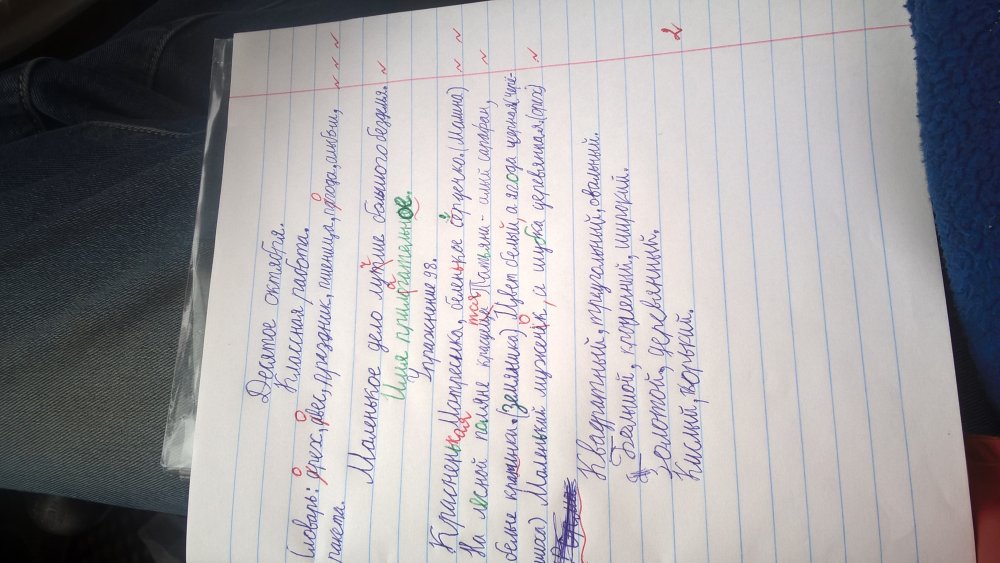 Десятое октября.
Классная работа.
Словарь: орех, овес, праздник, пшеница, погода, альбом,
ракета.
Маленькое дело лучше большого безделья.
Имя прилагательное.
Упражнение 98.
Красненькая Матрешка, беленькое сердечко. (Малина)
На лесной поляне красуется Татьяна - алый сарафан,
белые крапинки. (Земляника) Цвет белый, а ягода черная (чере-
миса) Маленький мужичок, а шубка деревянная. (орех)
Квадратный, треугольный, овальный.
Большой, круглений, широкий.
Золотой, деревянный.
Кислый, горький.
2